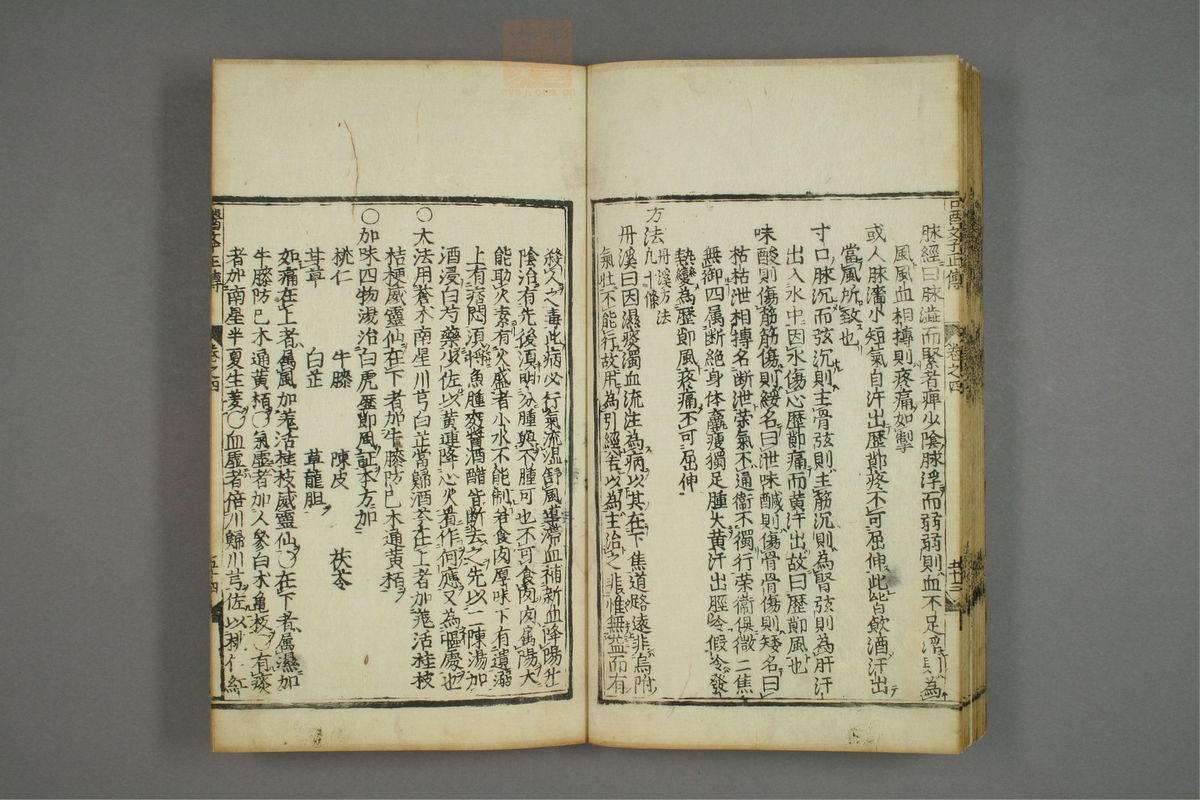 脉經曰脉澁而緊者痺少陰脉浮而弱弱則血不足浮則為
風風血相摶則疼痛如掣
或人脉濇小短氣自汗出歷節疼不可屈伸此皆飲酒汗出
當風所致也
寸口脉沉而弦沉則主骨弦則主筋沉則為腎弦則為肝汗
出入水中因水傷心歷節痛而黄汗出故曰歷節風也
味酸則傷筋筋傷則緩名曰泄味醎則傷骨骨傷則矮名曰
枯枯泄相摶名断泄榮氣不通衛不獨行榮衛俱微三焦
無御四属断絶身体羸瘦獨足腫大黄汗出脛冷假令發
熱變為歷節風疼痛不可屈伸
方法九十條
丹溪方法
丹溪曰因濕痰濁血流注為病以其在下焦道路遠非烏附
氣壯不能行故用為引經若以為主治之非惟無益而有
殺人之毒此病必行氣流湿舒風導滯血補新血降陽升
陰治有先後須明分腫與不腫可也不可食肉肉属陽大
能助火素有火盛者小水不能制若食肉厚味下有遺溺
上有痞悶須將魚腫麪醬酒醋皆断去之先以二陳湯加
酒浸白芍藥少佐以黄連降心火看作何應又為區處也
〇大法用蒼术南星川芎白芷當歸酒芩在上者加羗活桂枝
桔梗威靈仙在下者加牛膝防已木通黄栢
〇加味四物湯治白虎歷節風証本方加
桃仁 牛膝 陳皮 茯苓
甘草 白芷 草龍胆
如痛在上者属風加羗活桂枝威靈仙〇在下者属濕加
牛膝防已木通黄栢〇氣虚者加人參白术亀板〇有痰
者加南星半夏生姜〇血虚者倍川歸川芎佐以桃仁紅
醫学正傳
卷之四
五十四
醫学正傳
卷之四